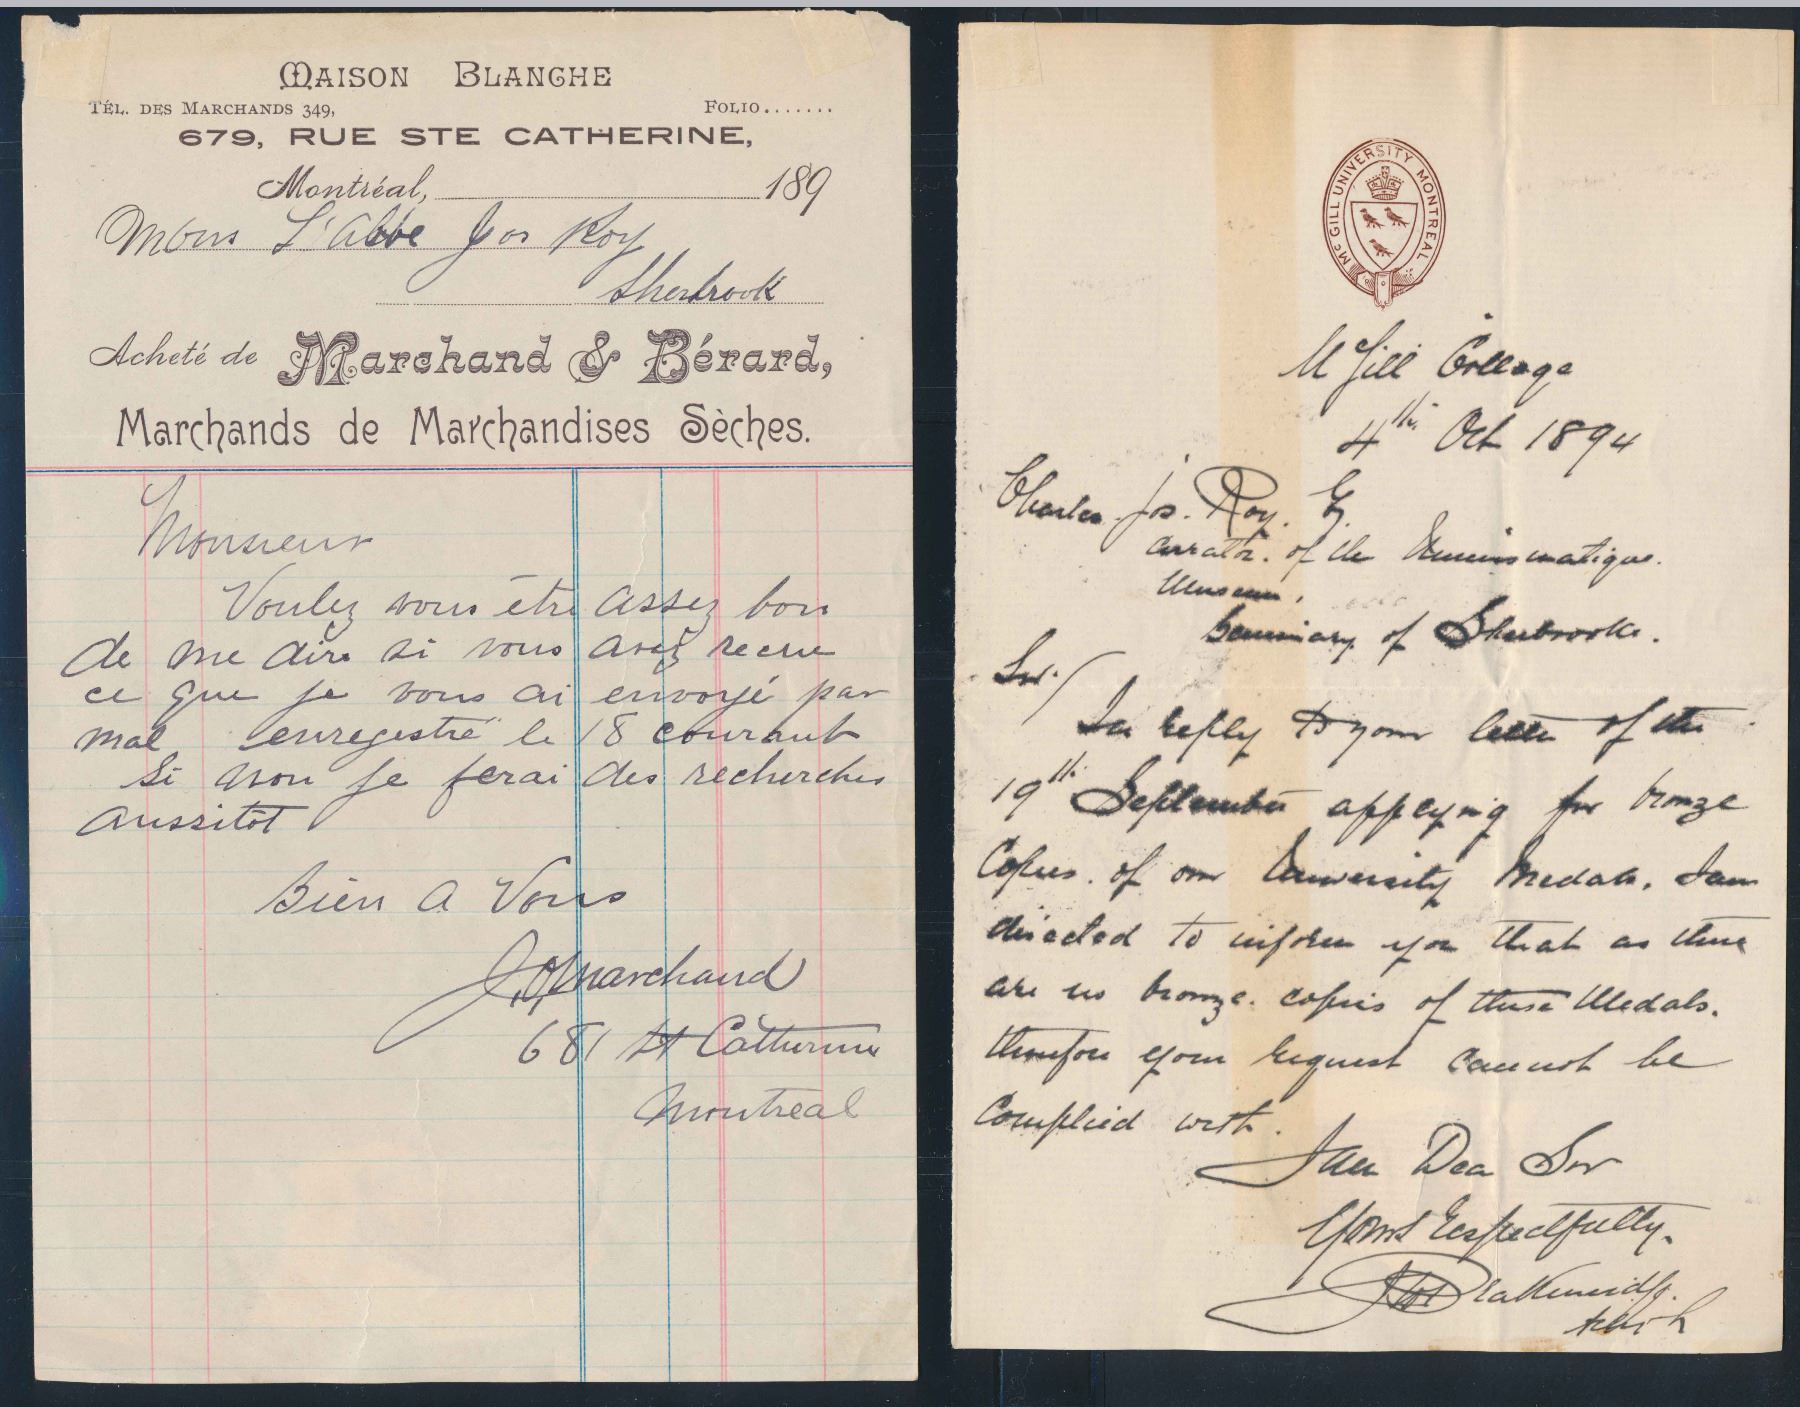 MAISON BLANCHE
TÉL. DES MARCHANDS 349,
FOLIO.......
679, RUE STE CATHERINE,
Montréal, 189
Mons L'Abbé Jos Roy
Sherbrook
Acheté de Marchand & Bérard,
Marchands de Marchandises Sèches.
Monsieur
Voulez vous être assez bon
de me dire si vous avez recue
ce que je vous ai envoyé par
mal enregestré le 18 courant
Si non je ferai des recherches
aussitôt
Bien A Vous
Marchand
681 St Catherine
Montreal
McGILL UNIVERSITY MONTREAL
McGill College
4th Oct 1894
Charles Jos. Roy. Esq.
Currator. of the Numinsmatique.
Museum,
Seminary of Sherbrooke.
Sir/
In reply to your letter of the
19th September applying for bronze
Copies. of our University Medals, I am
directed to inform you that as there
are no bronze. copies of these Medals.
therefore your request cannot be
Complied with.
I am Dear Sir
Yours respectfully.